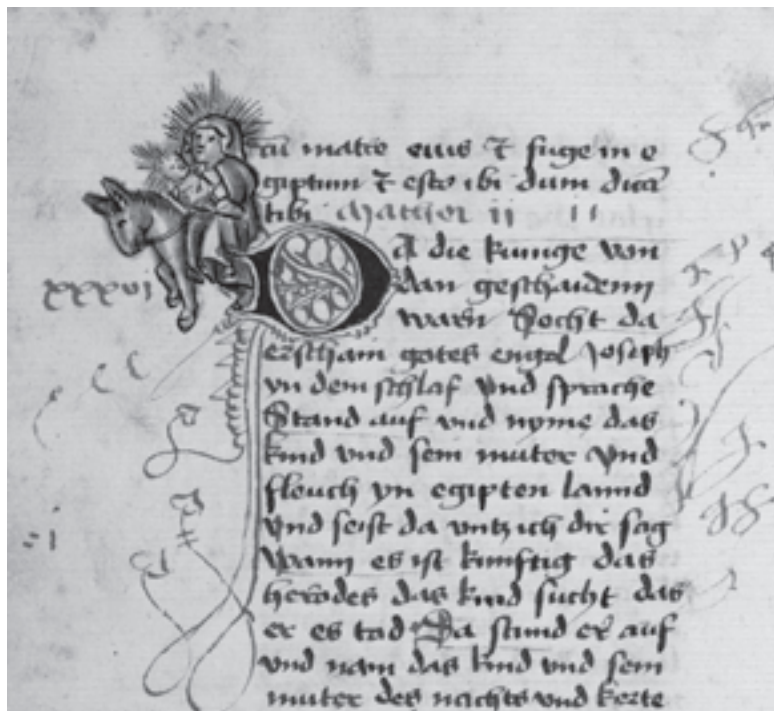 cū matre eius ⁊ fuge in e
giptum ⁊ esto ibi dum dicā
tibi Mathei ii
xxxvi
DA die kunige von
dan geschaidenn
warn Secht da
erscham gotes engel Joseph
yn dem schlaf vnd sprache
Stand auf vnd nyme das
kind vnd sein muter vnd
fleuch yn egipten lannd
vnd seist da vntz ich dir sag
wann es ist kunftig das
herodes das kind sucht das
er es tod Da stund er auf
vnd nam das kind vnd sein
muter des nachts vnd kerte